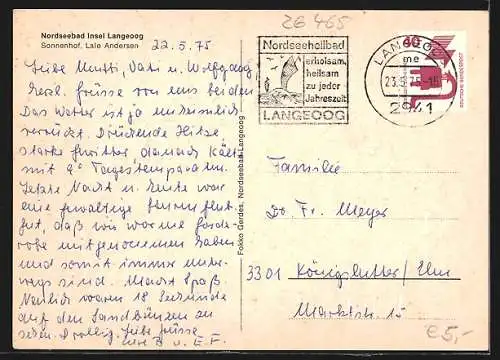 Nordseebad Insel Langeoog
Sonnenhof, Lale Andersen
22.5.75
ZG 465
Liebe Mutti, Vati u. Wolfgang
Herzl. Grüsse von uns beiden
Das Wetter ist ja unheimlich
verrückt. Drückende Hitze
starke Gewitter, danach Kälte
mit 8° Tagestemperatur.
Letzte Nacht u. heute war
eine gewaltige Sturmflut.
Gut, daß wir warme Garde-
robe mitgenommen haben
und somit immer unter-
wegs sind. Macht Spaß.
Neulich waren 18 Seehunde
auf den Sandbänken zu
sehen. Drollig. Liebe Grüsse
Eure B. u. E. F.
Fokko Gerdes, Nordseebad Langeoog
Nordseeheilbad
erholsam,
heilsam
zu jeder
Jahreszeit
LANGEOOG
LANGEOOG
me
23.5.75-15
2941
40
DEUTSCHE BUNDESPOST
Familie
Dr. Fr. Meyer
3301 Königslutter/Elm
Marktstr. 15
€5,-